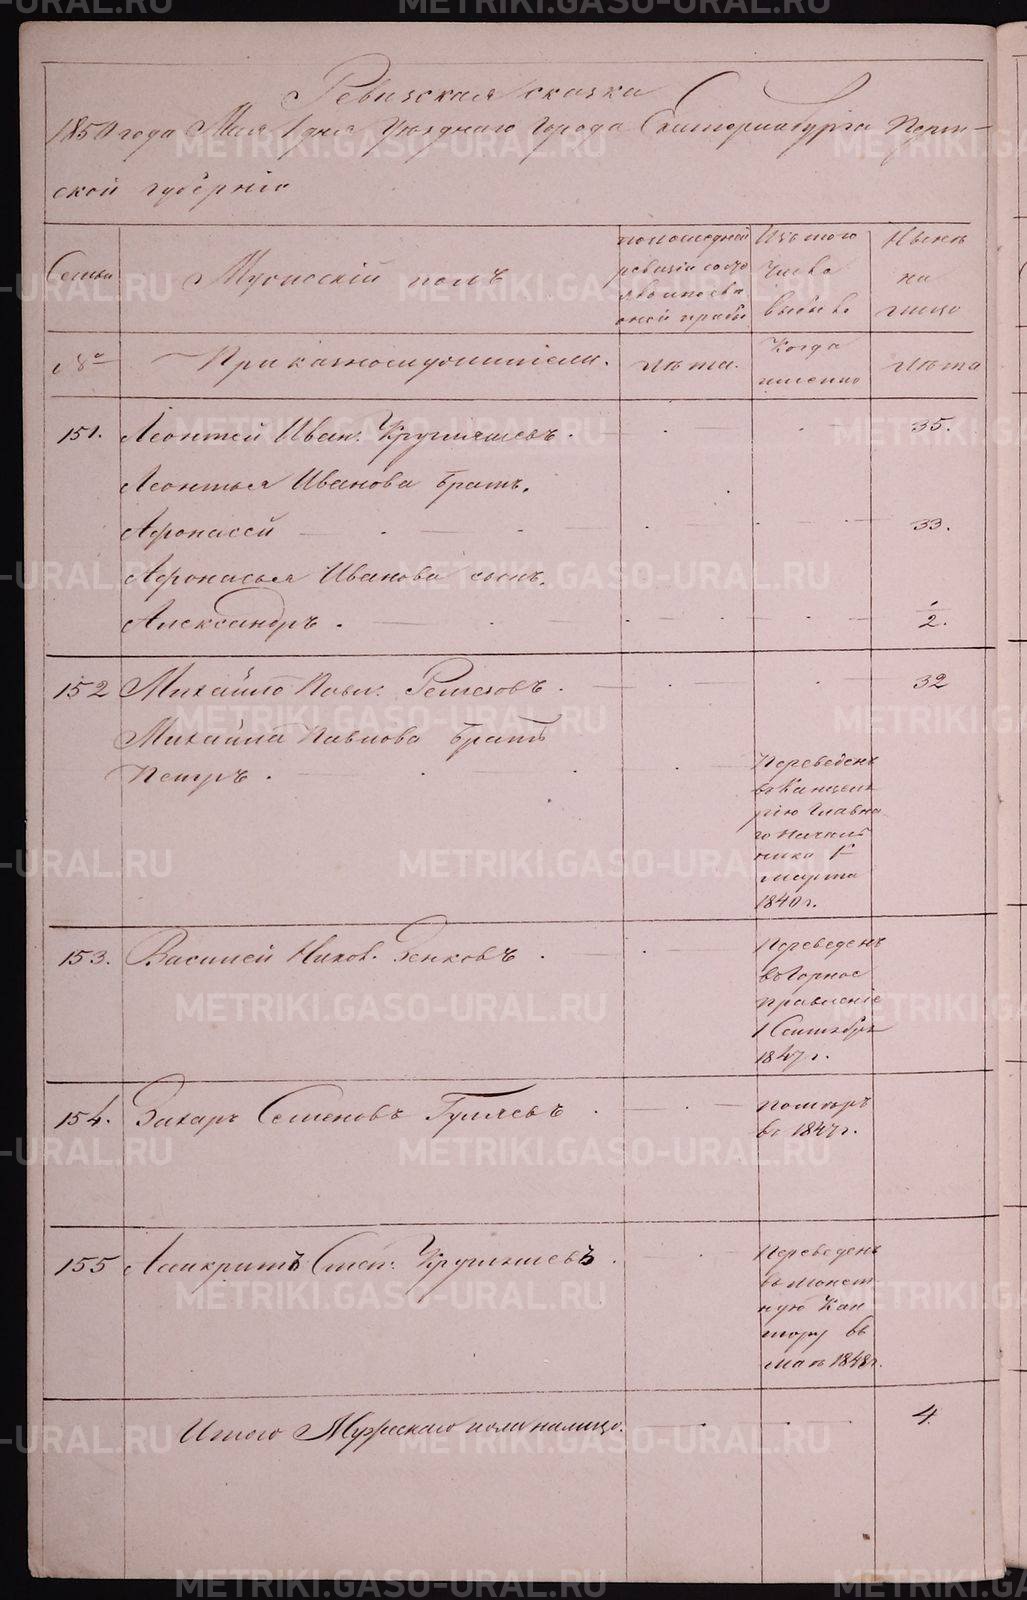 Ревизская сказка
1850 года Мая 1 дня Уезднаго города Екатеринбурга Перм-
ской губернiи
Семьи
Мужескiй полъ
по последней
ревизiи состо
Изъ того
числа
выбыло
Ныне
на
лицо
№
Приказнослужители.
лета.
Когда
именно
лета
151. Леонтей Иван. 35.
Леонтья Иванова братъ.
Афонасей 33.
Афонасья Иванова сынъ.
Александръ. 1/2.
152 Михайло Павл. 32
Михайла Павлова братъ
Петръ.
Переведенъ
въ Канцеля
рiю Главна
го Началь
ника 1
марта
1840 г.
153. Василей Никол. Зенковъ.
Переведенъ
въ Горное
правленiе
1 Сентября
1847 г.
154. Захаръ Семеновъ Гуляевъ.
померъ
въ 1847 г.
155 Панкратъ Степ.
Переведенъ
въ монет
ную Кон
тору въ
мае 1848 г.
Итого Мужескаго пола на лицо. 4
METRIKI.GASO-URAL.RU